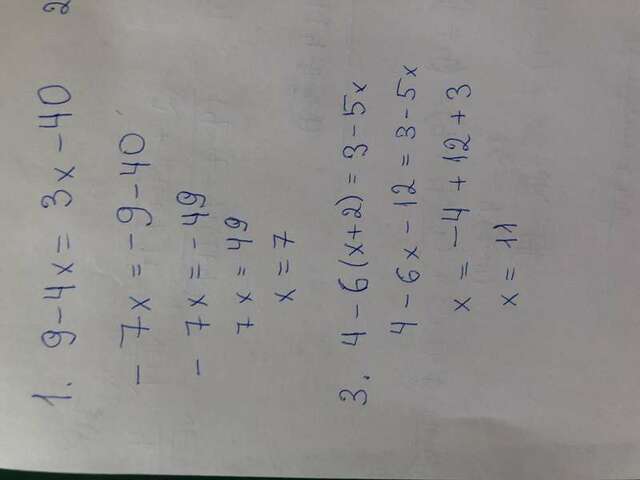 1. 9-4x = 3x -40
- 7x = -9-40
- 7x = -49
7x = 49
x = 7
2
3. 4-6(x+2) = 3-5x
4-6x-12 = 3-5x
x = -4+12+3
x = 11